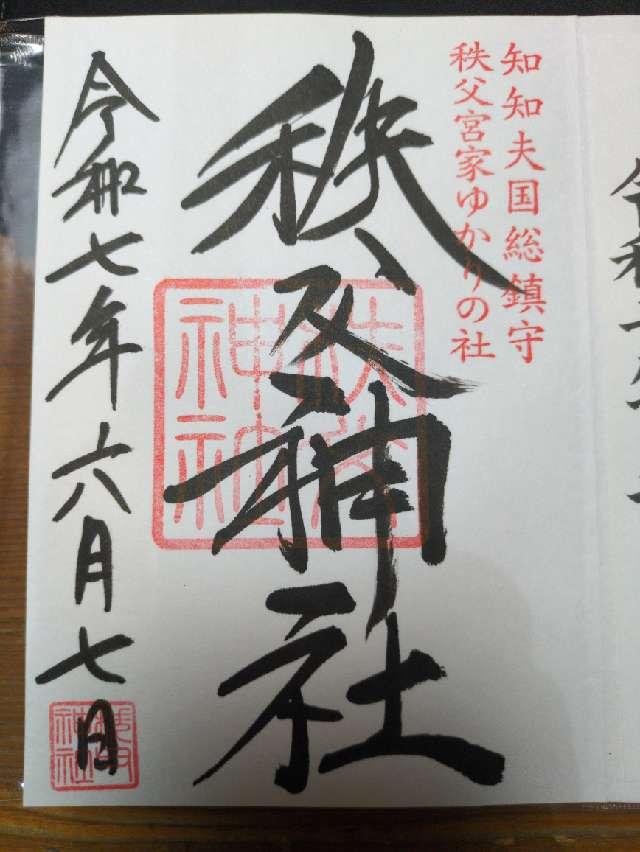 知知夫国総鎮守
秩父宮家ゆかりの社
秩父神社
秩父神社
令和七年六月七日